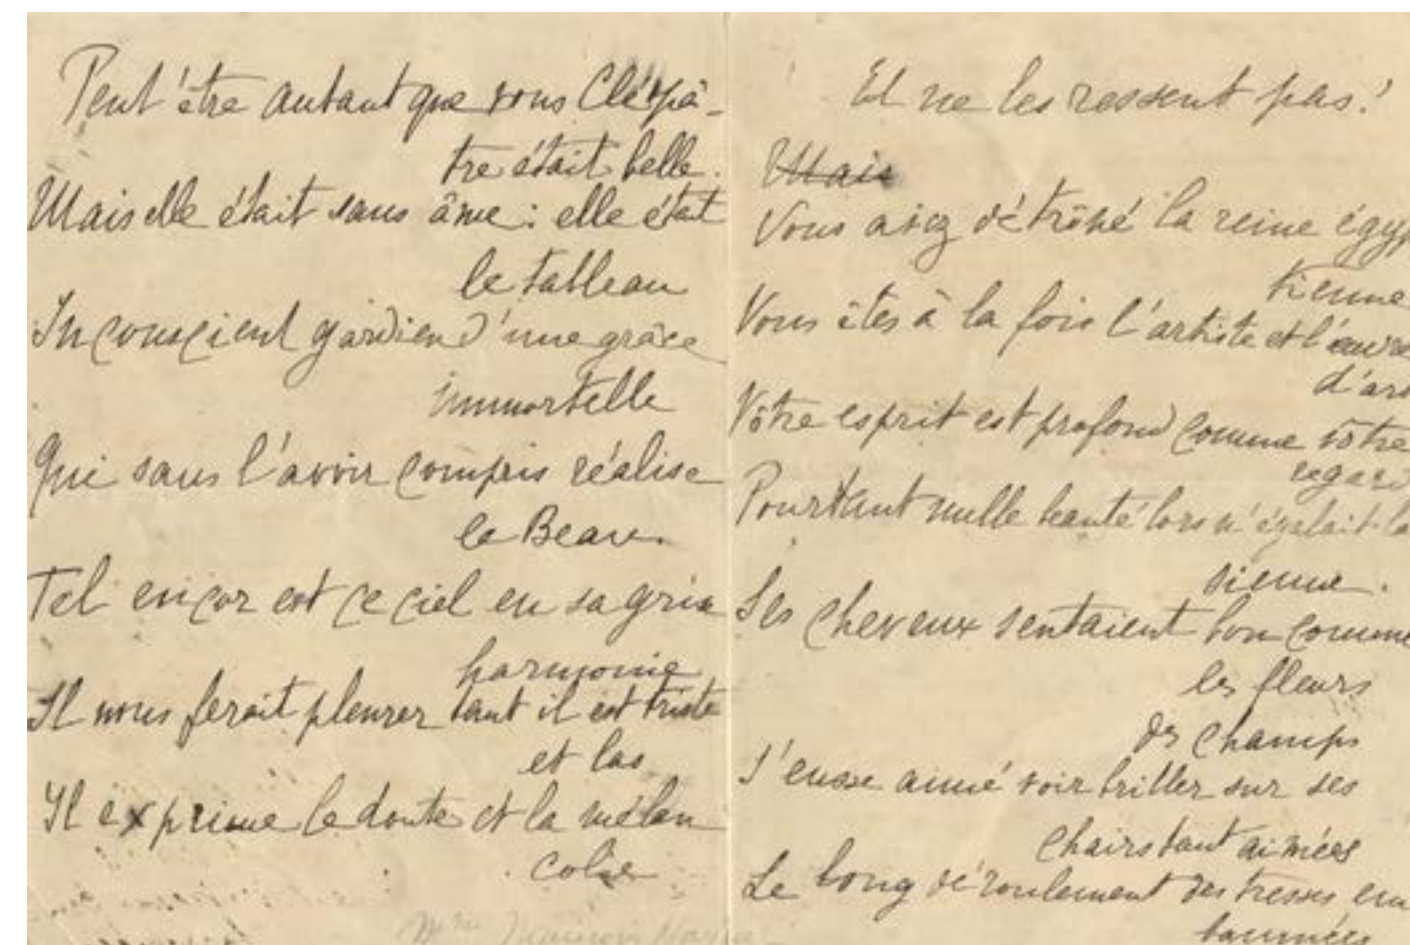 Peut'être autant que vous Cléopâ-
tre était belle.
Mais elle était sans âme : elle était
le tableau
Inconscient gardien d'une grâce
immortelle
Qui sans l'avoir compris réalise
le Beau.
Tel encor est ce ciel en sa grise
harmonie
Il nous ferait pleurer tant il est triste
et las
Il exprime le doute et la mélan
colie
Mme
Et ne les ressent pas!
Mais
Vous avez détrôné la reine égyp
tienne
Vous êtes à la fois l'artiste et l'œuvre
d'art
Vôtre esprit est profond comme vôtre
regard
Pourtant nulle beauté lors n'égalait la
sienne.
Ses cheveux sentaient bon comme
les fleurs
des champs
J'eusse aimé voir briller sur ses
chairs tant aimées
Le long déroulement des tresses em
baumées